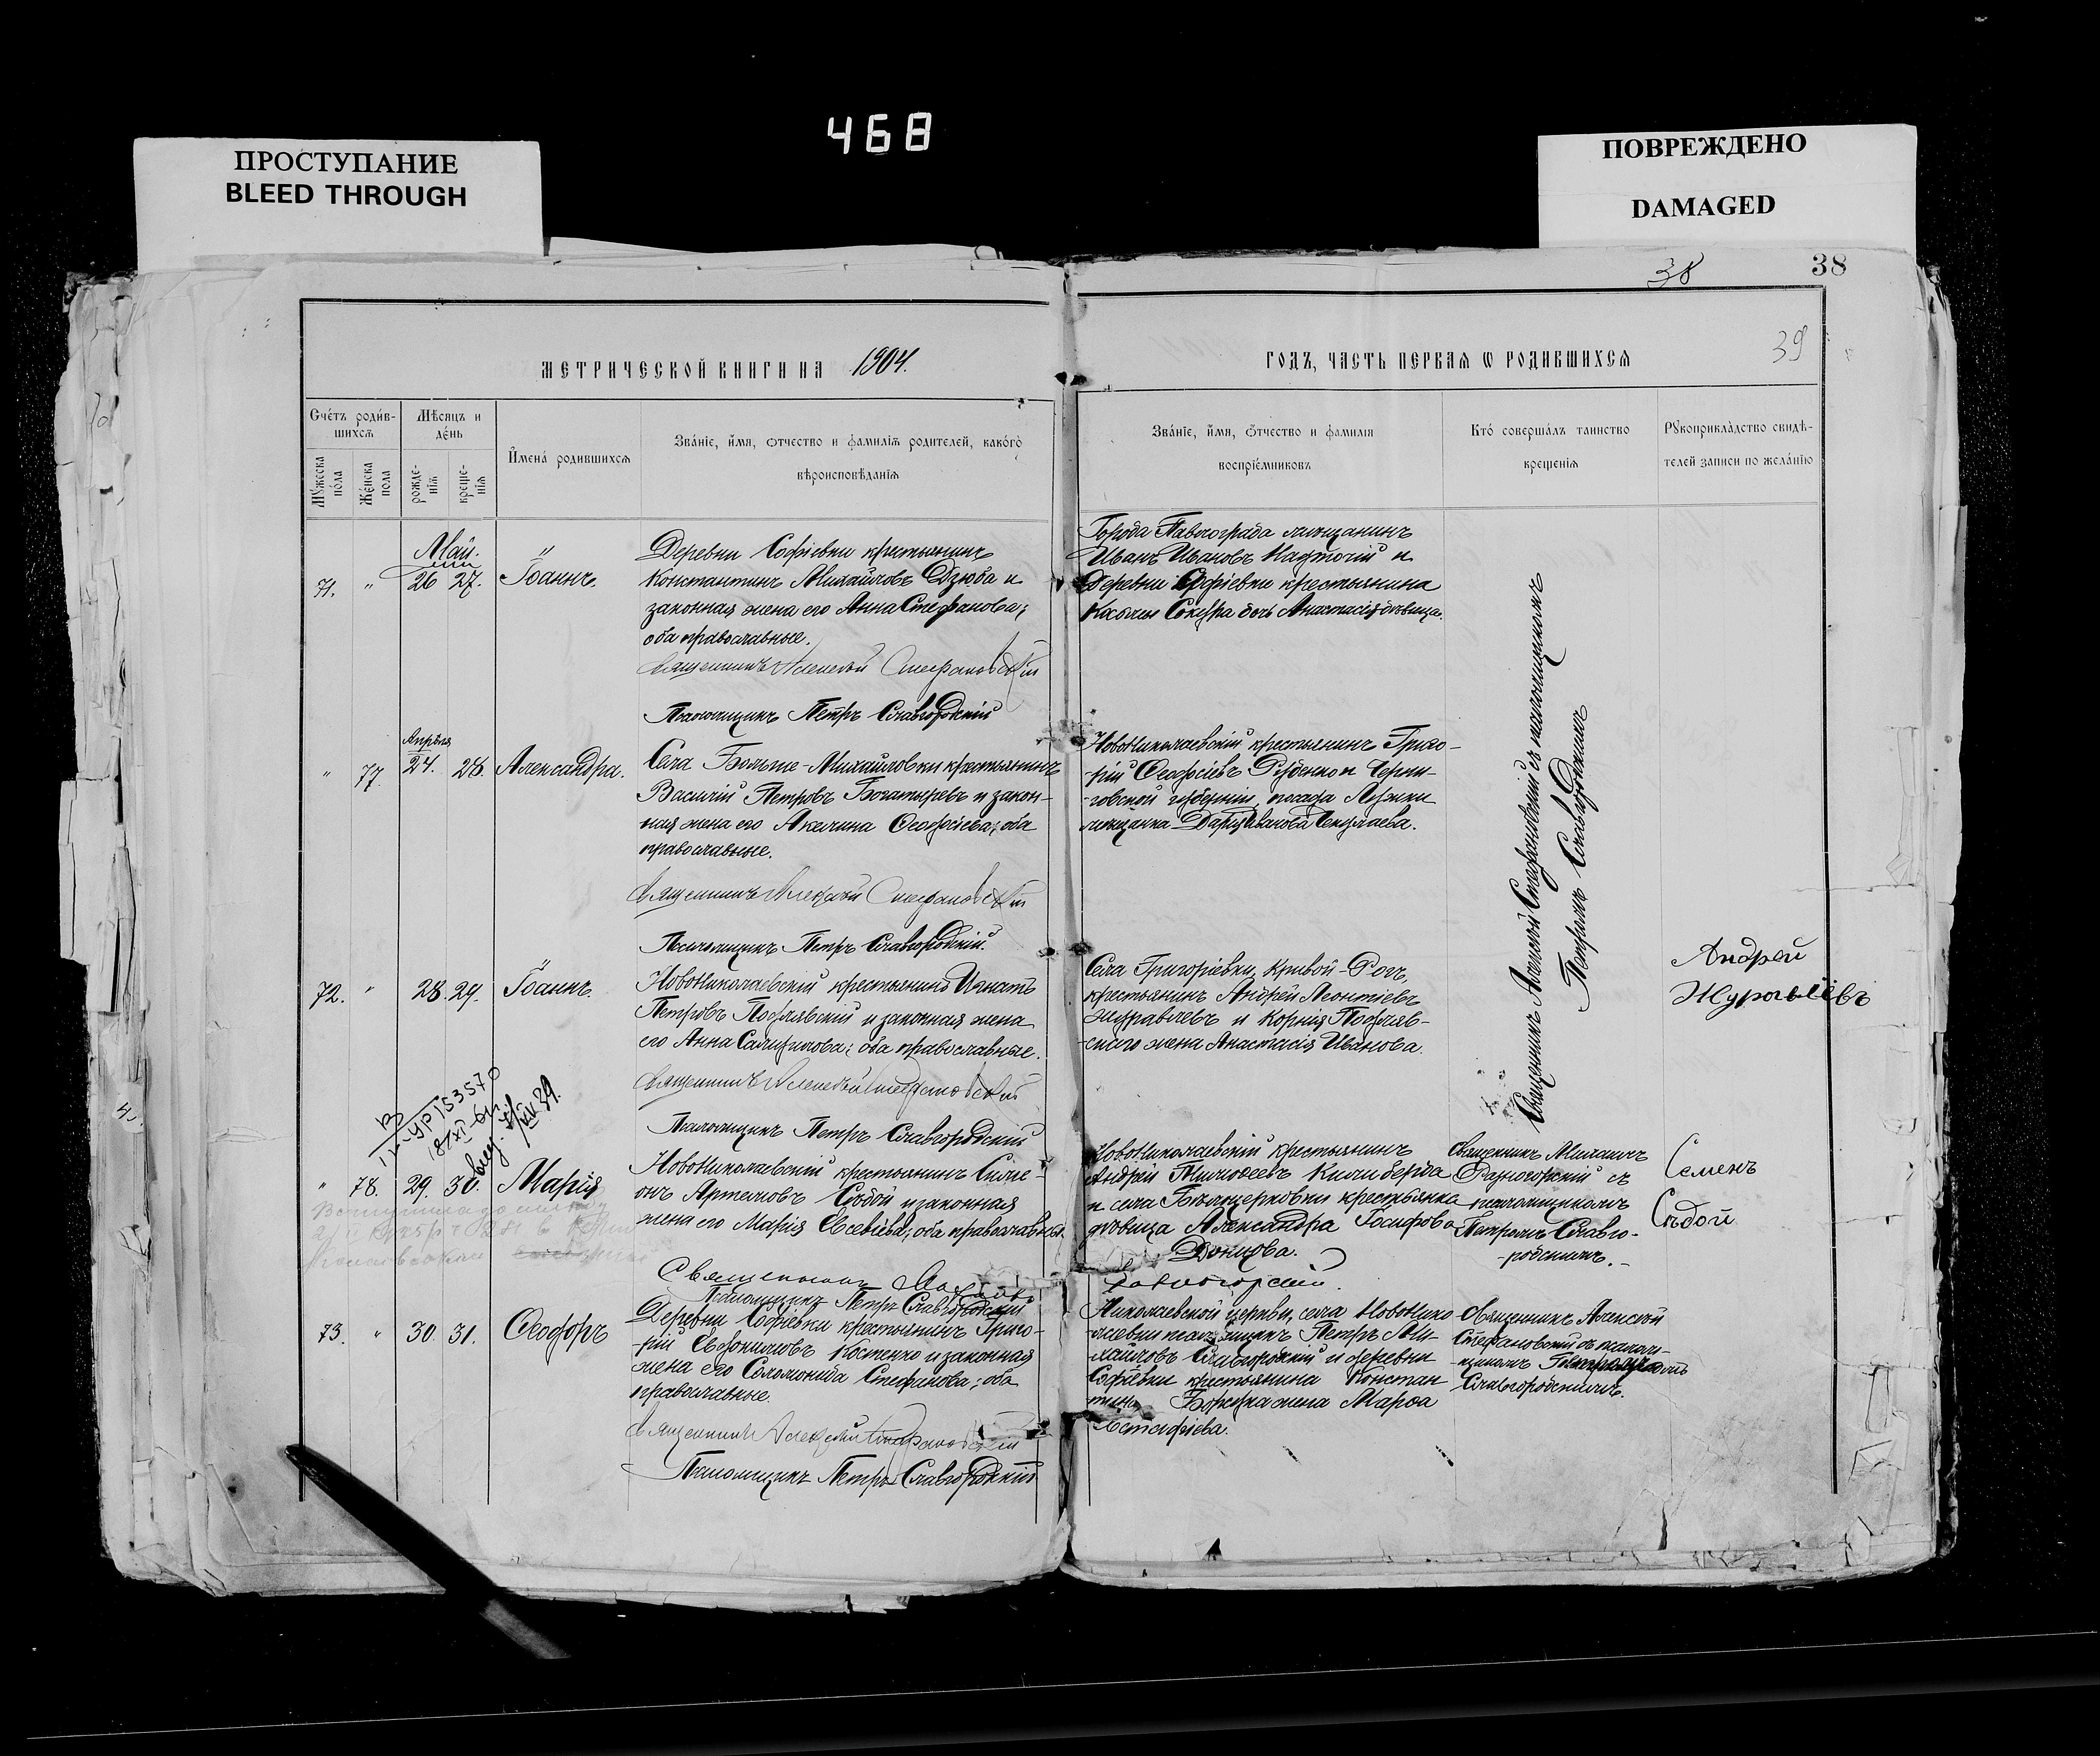 468
ПРОСТУПАНИЕ
BLEED THROUGH
ПОВРЕЖДЕНО
DAMAGED
38
38
39
МЕТРИЧЕСКОЙ КНИГИ НА 1904.
ГОДЪ, ЧАСТЬ ПЕРВАЯ Ѡ РОДИВШИХСЯ
Счётъ родив-
шихся
Мѣсяцъ и
день
Мужеска
пола
Женска
пола
рожде-
нія
креще-
нія
Имена родившихся
Званіе, имя, отчество и фамилія родителей, какого
вѣроисповѣданія
Званіе, имя, отчество и фамилія
воспріемниковъ
Кто совершалъ таинство
крещенія
Рукоприкладство свидѣ-
телей записи по желанію
Май.
71. " 26 27. Іоаннъ.
Деревни Софіевки крестьянинъ
Константинъ Михайловъ Дзюба и
законная жена его Анна Стефанова;
оба православные.
Священникъ Алексѣй Стефановскій
Псаломщикъ Петръ Славгородскій
Города Павлограда мѣщанинъ
Иванъ Ивановъ Надточій и
Деревни Софіевки крестьянина
Сокура дочь Анастасія дѣвица.
Апрѣля
" 77. 24. 28. Александра.
Села Больше-Михайловки крестьянинъ
Василій Петровъ Богатыревъ и закон-
ная жена его Акилина Ѳеофіева; оба
православные.
Священникъ Алексѣй Стефановскій
Псаломщикъ Петръ Славгородскій.
Новониколаевскій крестьянинъ Григо-
рій Руденко и Черни-
говской губерніи, посада Лужки
мѣщанка Дарія Иванова
72. " 28. 29. Іоаннъ.
Новониколаевскій крестьянинъ Игнатъ
Петровъ и законная жена
его Анна оба православные.
Священникъ Алексѣй Стефановскій
Псаломщикъ Петръ Славгородскій
Села Григоріевки, Кривой-Рогъ,
крестьянинъ Андрей Леонтіевъ
Журавлевъ и Корнія
жена Анастасія Иванова.
Андрей
Журавлёвъ
Священникъ Алексѣй Стефановскій съ псаломщикомъ
Петромъ Славгородскимъ
" 78. 29. 30. Марія
Новониколаевскій крестьянинъ Симе-
онъ Артемовъ Сѣдой и законная
жена его Марія Евсевіева; оба православные.
Священникъ
Псаломщикъ Петръ Славгородскій
Новониколаевскій крестьянинъ
Андрей Тимоѳеевъ Килиберда
и села Бѣлоцерковки крестьянка
дѣвица Александра Іосифова
Донцова.
Священникъ
съ
псаломщикомъ
Петромъ Славго-
родскимъ.
Семенъ
Сѣдой
73. " 30. 31. Ѳеодоръ
Деревни Софіевки крестьянинъ Григо-
рій Костенко и законная
жена его Соломонида Стефанова; оба
православные.
Священникъ Алексѣй Стефановскій
Псаломщикъ Петръ Славгородскій
Николаевской церкви, села Новонико-
лаевки псаломщикъ Петръ Ми-
хайловъ Славгородскій и деревни
Софіевки крестьянина Констан-
тина жена Марѳа
Священникъ Алексѣй
Стефановскій съ псалом-
щикомъ
Славгородскимъ.